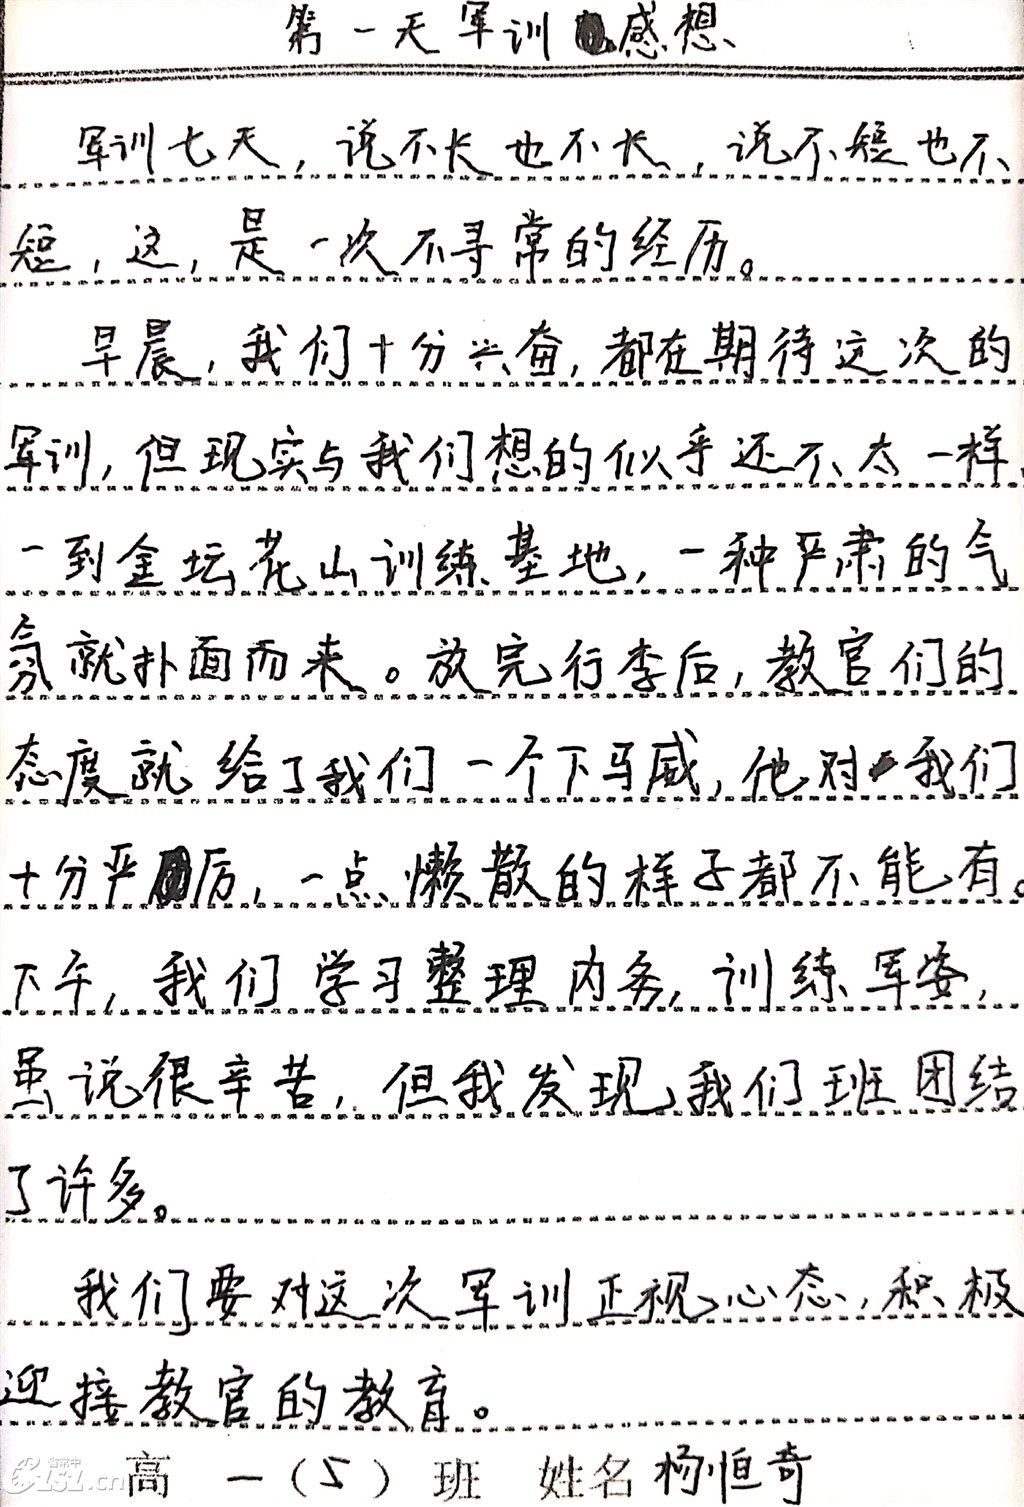 第一天军训感想
军训七天，说不长也不长，说不短也不
短，这，是一次不寻常的经历。
早晨，我们十分兴奋，都在期待这次的
军训，但现实与我们想的似乎还不太一样，
一到金坛花山训练基地，一种严肃的气
氛就扑面而来。放完行李后，教官们的
态度就给了我们一个下马威，他对我们
十分严厉，一点懒散的样子都不能有。
下午，我们学习整理内务，训练军姿，
虽说很辛苦，但我发现我们班团结
了许多。
我们要对这次军训正视心态，积极
迎接教官的教育。
高一（5）班 姓名 杨恒奇
省常中